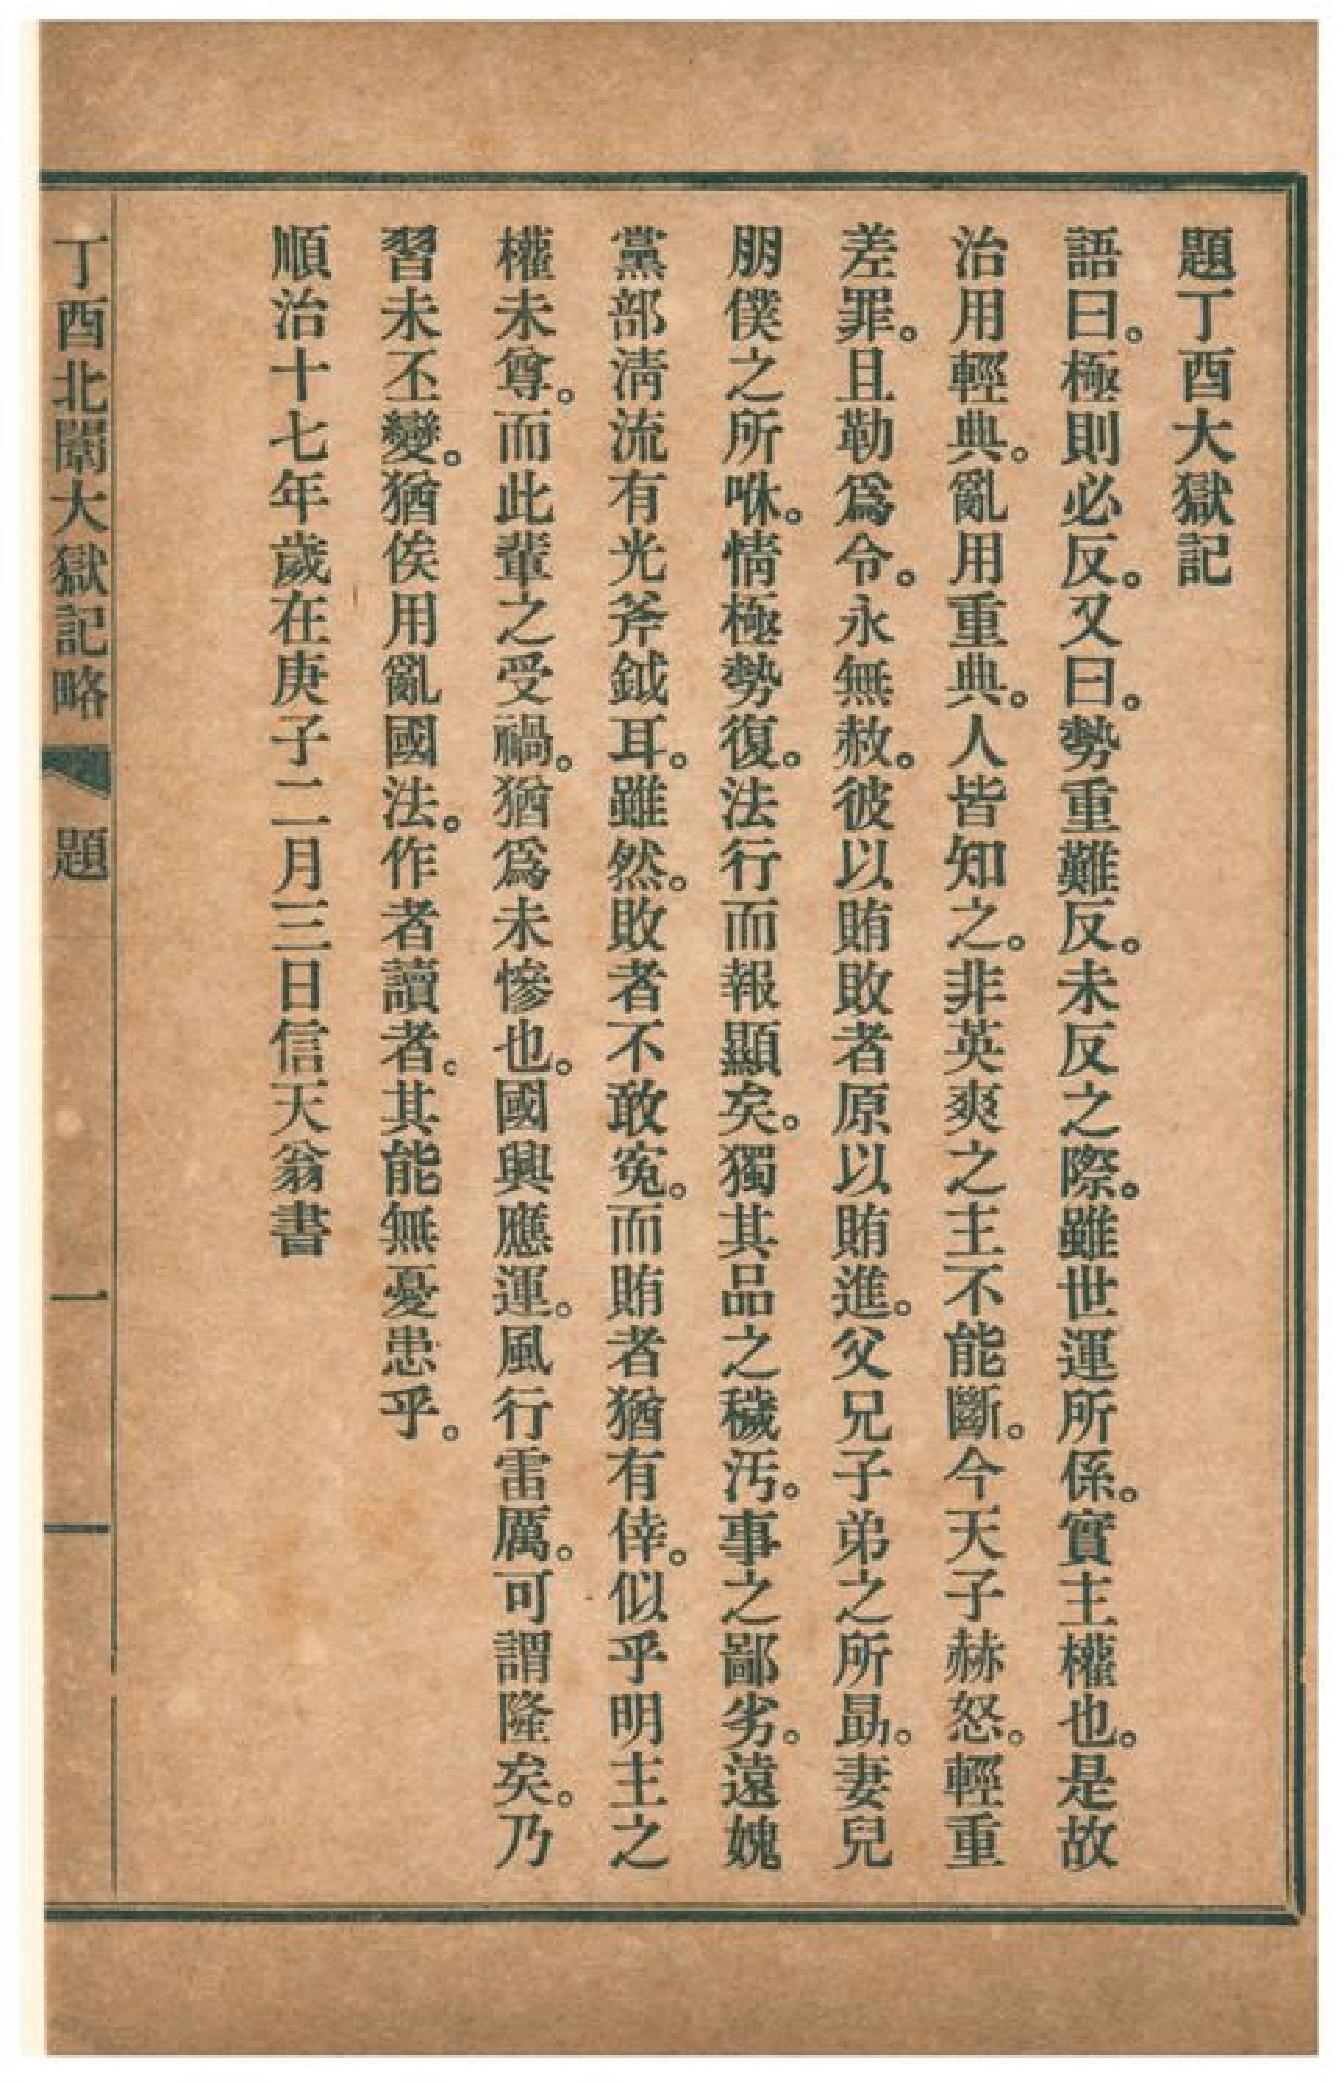 題丁酉大獄記
語曰。極則必反。又曰。勢重難反。未反之際。雖世運所係。實主權也。是故
治用輕典。亂用重典。人皆知之。非英爽之主不能斷。今天子赫怒。輕重
差罪。且勒爲令。永無赦。彼以賄敗者原以賄進。父兄子弟之所勗。妻兒
朋僕之所咻。情極勢復。法行而報顯矣。獨其品之穢汚。事之鄙劣。遠媿
黨部淸流有光斧鉞耳。雖然。敗者不敢寃。而賄者猶有倖。似乎明主之
權未尊。而此輩之受禍。猶爲未慘也。國興應運。風行雷厲。可謂隆矣。乃
習未丕變。猶俟用亂國法。作者讀者。其能無憂患乎。
順治十七年歲在庚子二月三日信天翁書
丁酉北闈大獄記略 題 一